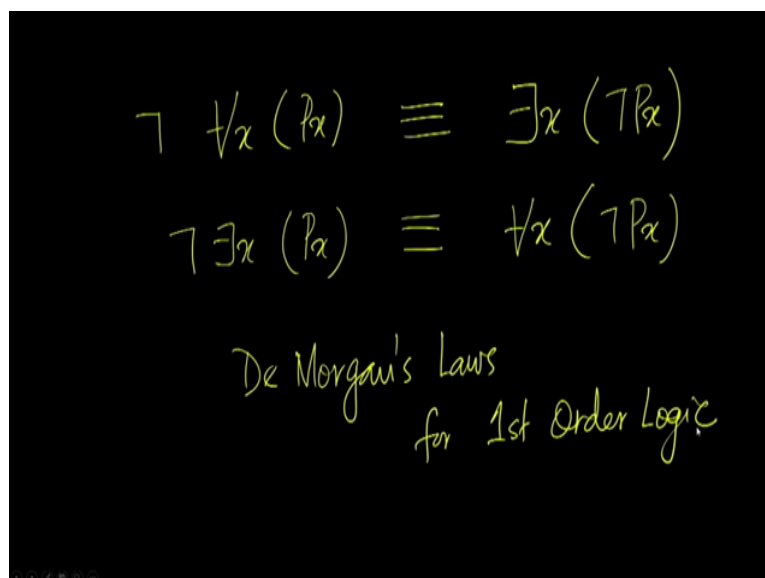 ¬ ∀x (Px) ≡ ∃x (¬Px)
¬ ∃x (Px) ≡ ∀x (¬Px)
De Morgan's Laws
for 1st Order Logic